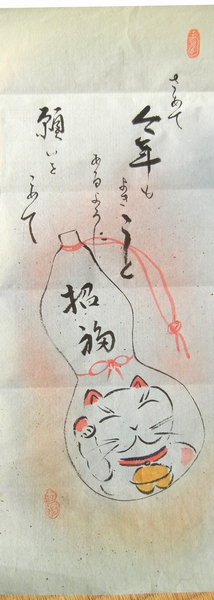 さあて
今年も
よきこと
あるように
願いを
こめて
招福